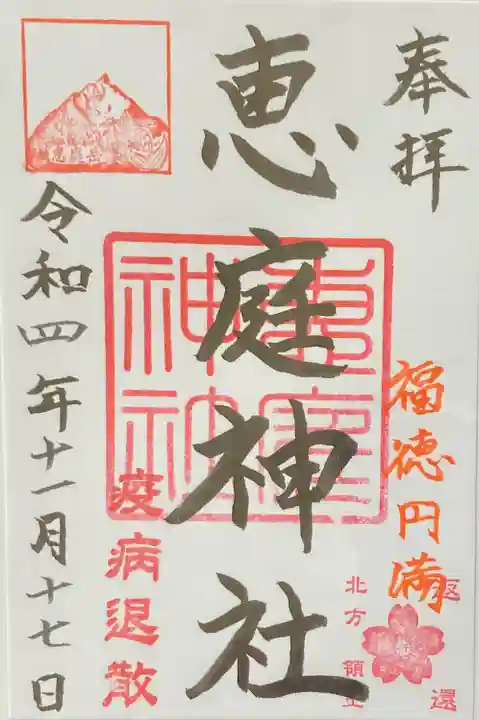 奉拝
福徳円満
返還
北方領土
恵庭神社
恵庭神社
疫病退散
恵庭岳
令和四年十一月十七日